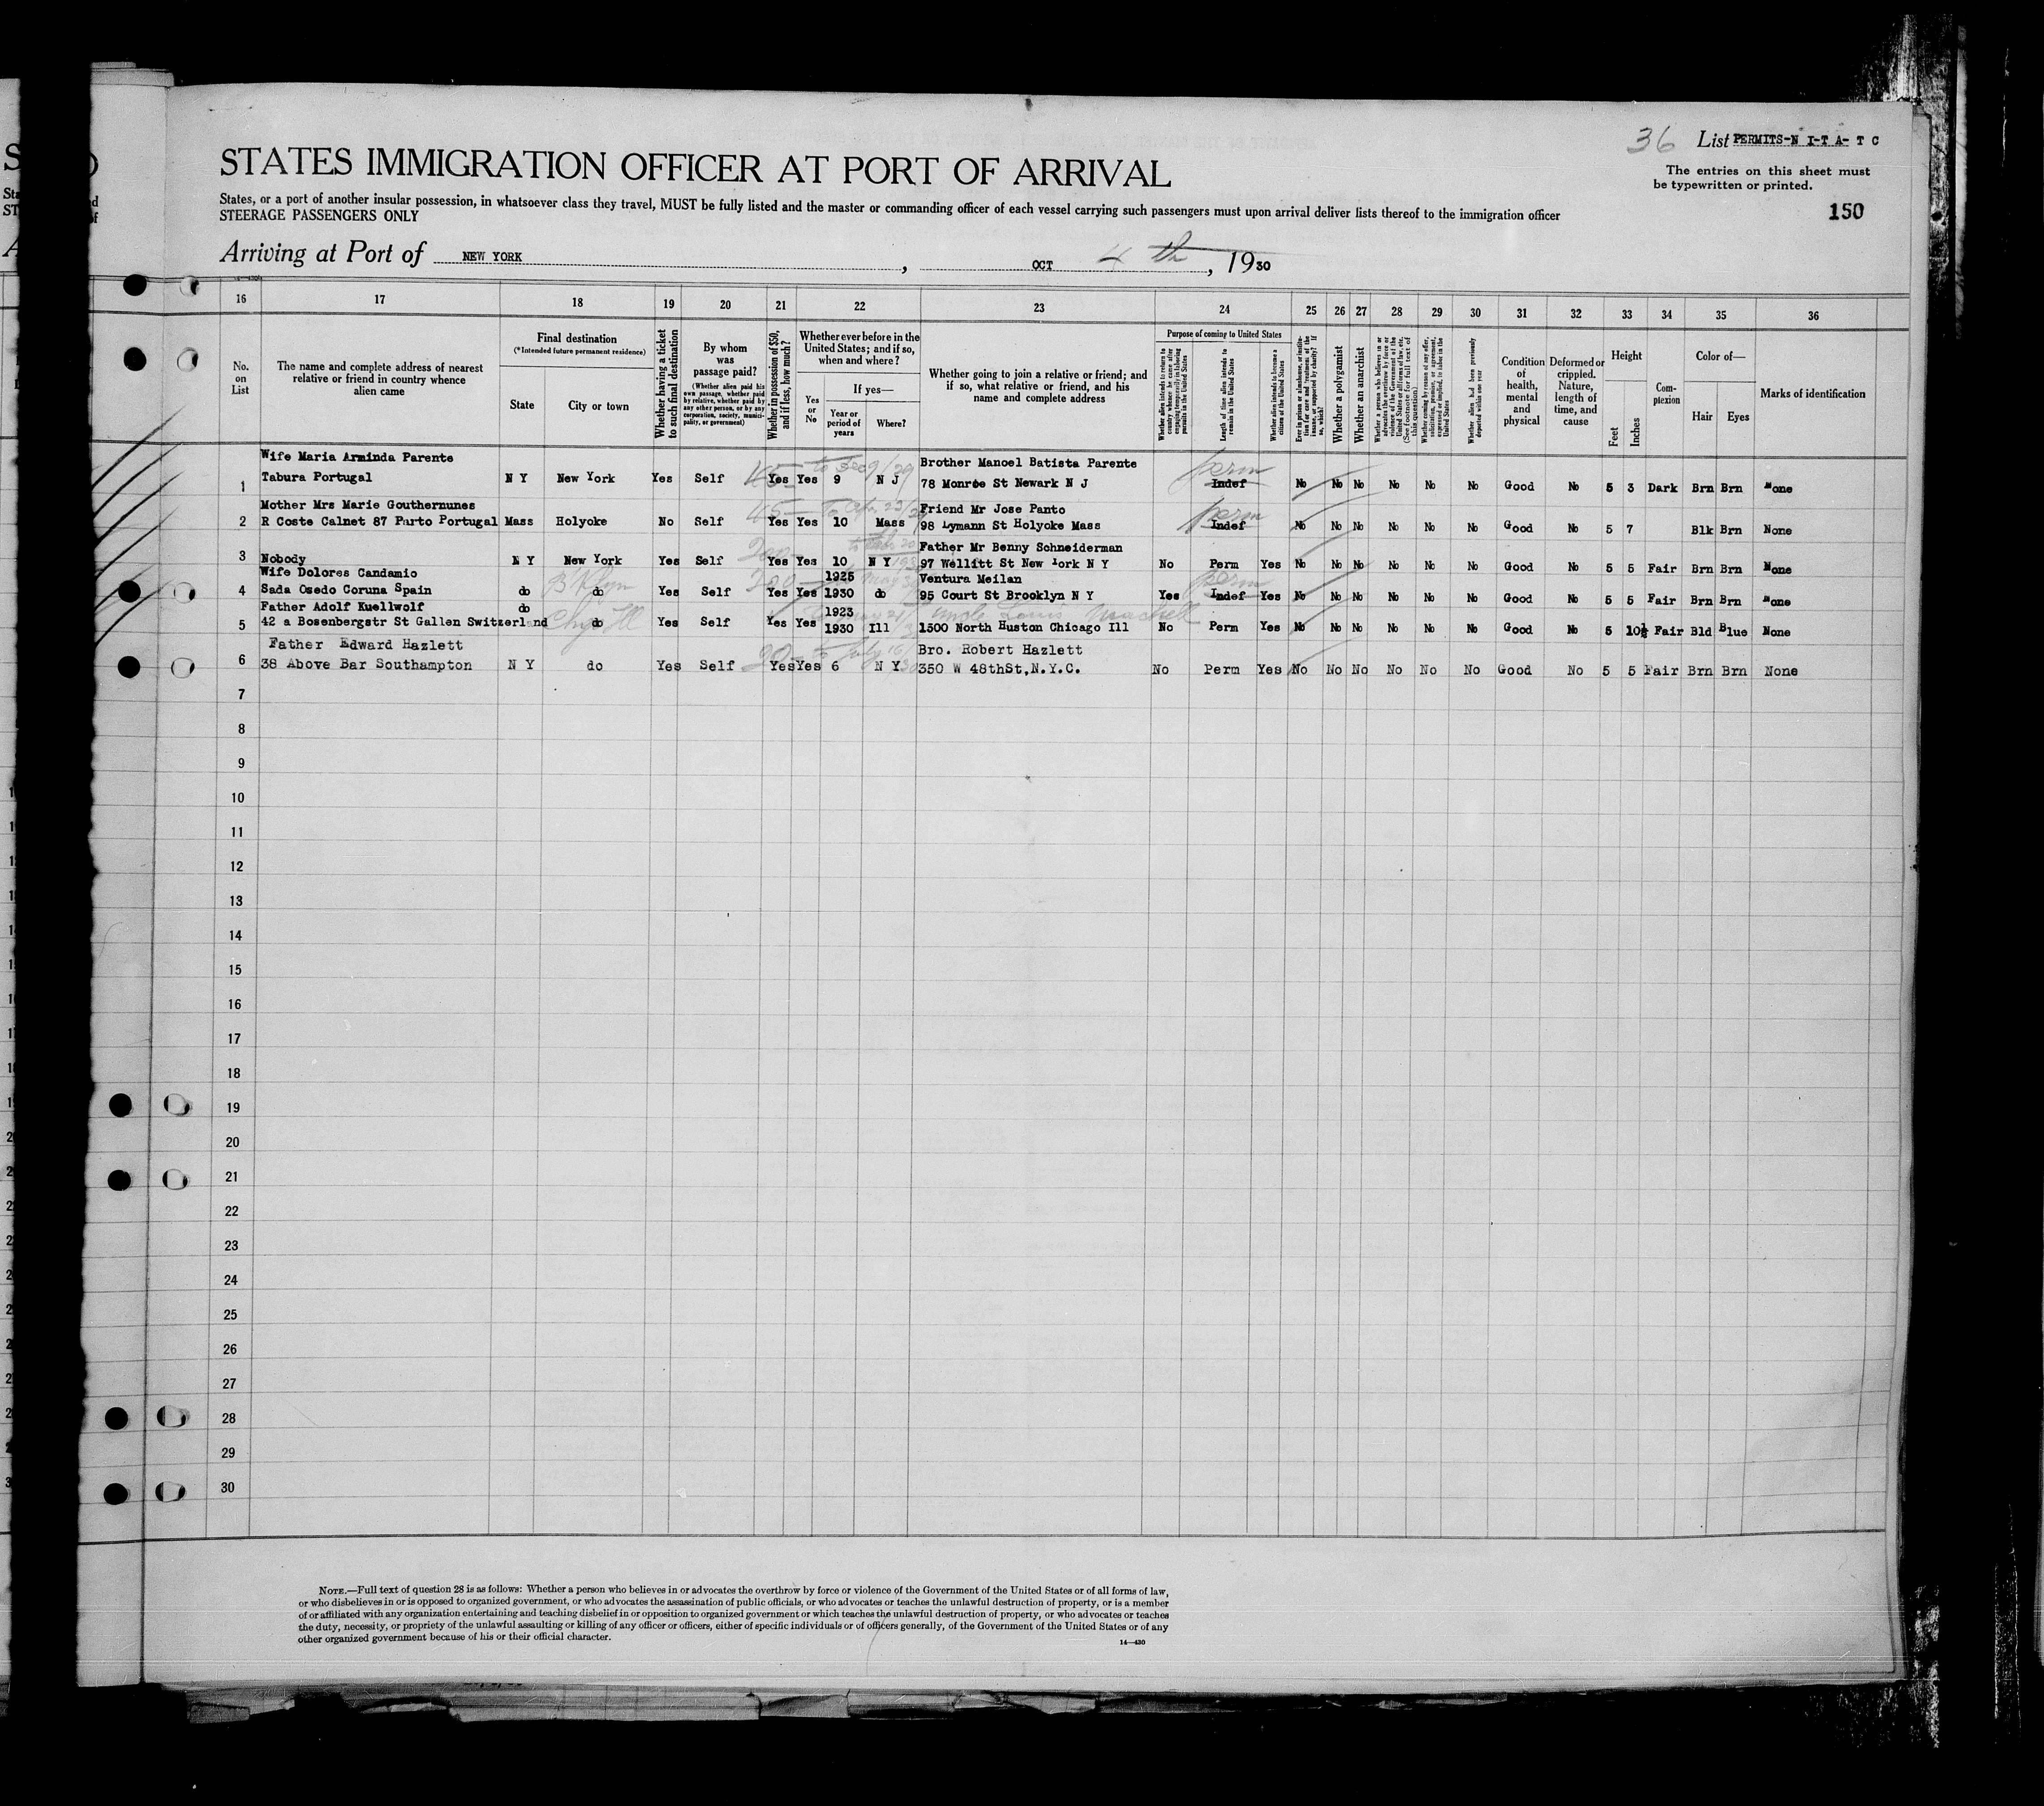 36 List PERMITS-N I-T A- T C
STATES IMMIGRATION OFFICER AT PORT OF ARRIVAL
The entries on this sheet must
be typewritten or printed.
States, or a port of another insular possession, in whatsoever class they travel, MUST be fully listed and the master or commanding officer of each vessel carrying such passengers must upon arrival deliver lists thereof to the immigration officer
STEERAGE PASSENGERS ONLY
150
Arriving at Port of NEW YORK, OCT 4th, 1930
16 17 18 19 20 21 22 23 24 25 26 27 28 29 30 31 32 33 34 35 36
No. on List
The name and complete address of nearest
relative or friend in country whence
alien came
Final destination
(*Intended future permanent residence)
State
City or town
Whether having a ticket
to such final destination
By whom
was
passage paid?
(Whether alien paid his
own passage, whether paid
by relative, whether paid by
any other person, or by any
corporation, society, munici-
pality, or government)
Whether in possession of $50,
and if less, how much?
Whether ever before in the
United States; and if so,
when and where?
Yes
or
No
If yes—
Year or
period of
years
Where?
Whether going to join a relative or friend; and
if so, what relative or friend, and his
name and complete address
Purpose of coming to United States
Whether alien intends to return to
country whence he came after
engaging temporarily in laboring
pursuits in the United States
Length of time alien intends to
remain in the United States
Whether alien intends to become a
citizen of the United States
Ever in prison or almshouse, or institu-
tion for care and treatment of the
insane, or supported by charity? If
so, which?
Whether a polygamist
Whether an anarchist
Whether a person who believes in or
advocates the overthrow by force or
violence of the Government of the
United States or all forms of law, etc.
(See footnote for full text of
this question)
Whether coming by reason of any offer,
solicitation, promise, or agreement,
expressed or implied, to labor in the
United States
Whether alien had been previously
deported within one year
Condition
of
health,
mental
and
physical
Deformed or
crippled.
Nature,
length of
time, and
cause
Height
Feet
Inches
Com-
plexion
Color of—
Hair
Eyes
Marks of identification
Wife Maria Arminda Parente Brother Manoel Batista Parente perm
1 Tabura Portugal N Y New York Yes Self 45 Yes Yes 9 N J 78 Monroe St Newark N J Indef No No No No No No Good No 5 3 Dark Brn Brn None
Mother Mrs Marie Gouthernunes Friend Mr Jose Panto perm
2 R Coste Calnet 87 Parto Portugal Mass Holyoke No Self 45 Yes Yes 10 Mass 98 Lymann St Holyoke Mass Indef No No No No No No Good No 5 7 Blk Brn None
Father Mr Benny Schneiderman
3 Nobody N Y New York Yes Self Yes Yes 10 N Y 97 Wellitt St New York N Y No Perm Yes No No No No No No Good No 5 5 Fair Brn Brn None
Wife Dolores Candamio 1925 Ventura Meilan perm
4 Sada Osedo Coruna Spain do B'klyn do Yes Self Yes Yes 1930 do 95 Court St Brooklyn N Y Yes Indef Yes No No No No No No Good No 5 5 Fair Brn Brn None
Father Adolf Kuellwolf do 1923 Uncle Louis
5 42 a Bosenbergstr St Gallen Switzerlnd Chgo Ill do Yes Self Yes Yes 1930 Ill 1500 North Huston Chicago Ill No Perm Yes No No No No No No Good No 5 10½ Fair Bld Blue None
Father Edward Hazlett to July 16/30 Bro. Robert Hazlett
6 38 Above Bar Southampton N Y do Yes Self 20 Yes Yes 6 N Y 350 W 48thSt,N.Y.C. No Perm Yes No No No No No No Good No 5 5 Fair Brn Brn None
7
8
9
10
11
12
13
14
15
16
17
18
19
20
21
22
23
24
25
26
27
28
29
30
NOTE.—Full text of question 28 is as follows: Whether a person who believes in or advocates the overthrow by force or violence of the Government of the United States or of all forms of law,
or who disbelieves in or is opposed to organized government, or who advocates the assassination of public officials, or who advocates or teaches the unlawful destruction of property, or is a member
of or affiliated with any organization entertaining and teaching disbelief in or opposition to organized government or which teaches the unlawful destruction of property, or who advocates or teaches
the duty, necessity, or propriety of the unlawful assaulting or killing of any officer or officers, either of specific individuals or of officers generally, of the Government of the United States or of any
other organized government because of his or their official character.
14—430